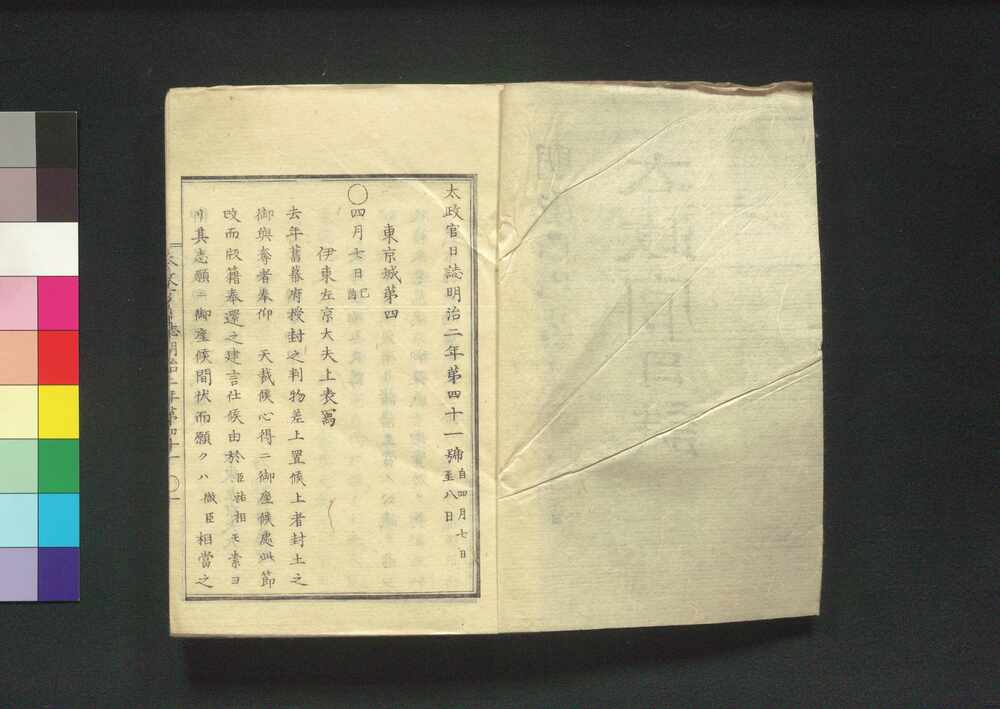 太政官日誌明治二年第四十一號 自四月七日 至八日
東京城第四
○四月七日 己酉
伊東左京大夫上表寫
去年舊幕府授封之判物差上置候上者封土之
御與奪者奉仰 天裁候心得ニ御座候處此節
改而版籍奉還之建言仕候由於臣祐相モ素ヨ
リ其志願ニ御座候間伏而願クハ微臣相當之
太政官日誌明治二年第四十一 ○一